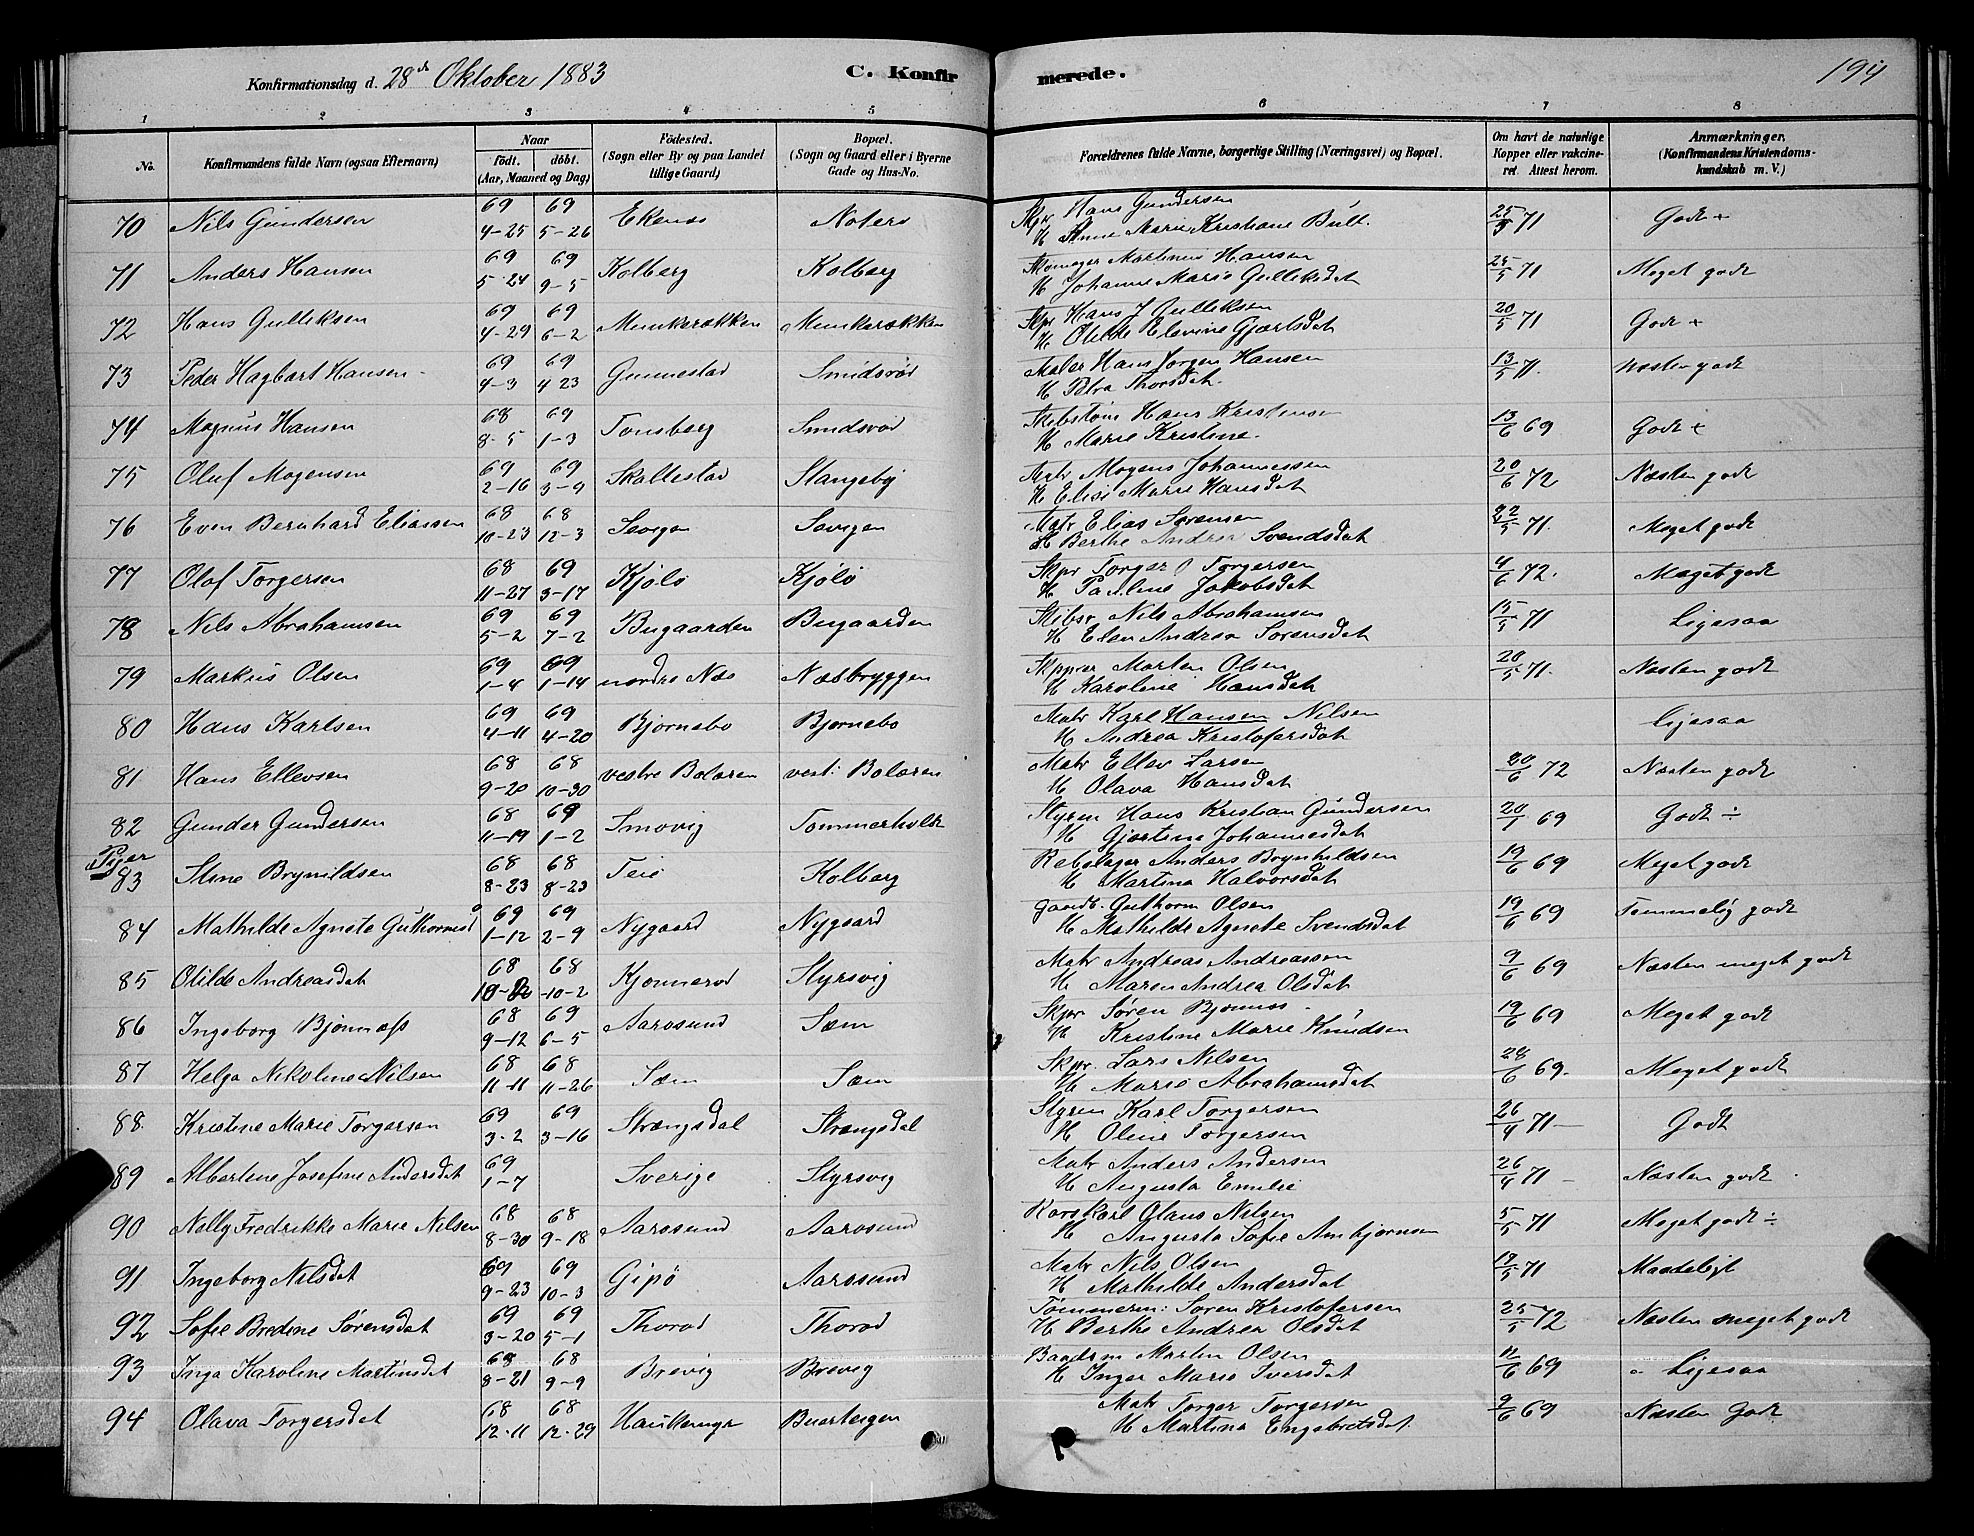 Konfirmationsdag d. 28de Oktober 1883
C. Konfirmerede.
194
1 2 3 4 5 6 7 8
No. Konfirmandens fulde Navn (ogsaa Efternavn) Naar födt. döbt. (Aar, Maaned og Dag) Födested. (Sogn eller By og paa Landet tillige Gaard) Bopæl. (Sogn og Gaard eller i Byerne Gade og Hus-No. Forældrenes fulde Navne, borgerlige Stilling (Næringsvei) og Bopæl. Om havt de naturlige Kopper eller vakcineret Attest herom. Anmærkninger, (Konfirmandens Kristendomskundskab m. V.)
70 Nils Gundersen 69 4-25 69 5-26 Ekenes Noterø Skpr Hans Gundersen H Anne Marie Kristiane Bull. 25/5 71 Godt +
71 Anders Hansen 69 5-24 69 9-5 Kolberg Kolberg Skomager Martinus Hansen H Johanne Marie Gulliksdat 25/5 71 Meget godt
72 Hans Gulliksen 69 4-29 69 6-2 Munkerækken Munkerækken Skpr Hans J Gulliksen H Otilde Elevine Gjærtsdat 20/5 71 Godt +
73 Peder Hagbart Hansen 69 4-3 69 4 23 Gunnestad Smidsrød Maler Hans Jørgen Hansen H Petra Thorsdat. 13/5 71. Næsten godt
74 Magnus Hansen 68 8-5 69 1-3 Tønsberg Smidsrød Skibstøm Hans Kristensen H Marie Kristine. 13/6 69 Godt ÷
75 Oluf Mogensen 69 2-16 69 3-9 Skallestad Stangeby Matr Mogens Johannessen H Elise Marie Hansdat 20/6 72 Næsten godt
76 Even Bernhard Eliassen 68 10-23 68 12-3 Søvigen Søvigen Matr Elias Sørensen H Berthe Andrea Svendsdat 22/5 71. Meget godt
77 Olaf Torgersen 68 11-27 69 3-17 Kjølø Kjølø Skpr Torger Torgersen H Pauline Jakobsdat 4/6 72. Meget godt
78 Nils Abrahamsen 69 5-2 69 7-2 Bugaarden Bugaarden Skibsr Nils Abrahamsen H Elen Andrea Sørensdat 15/5 71 Ligesaa
79 Markus Olsen 69 1-4 69 1-14 nordre Næs Næsbryggen Skpper Morten Olsen H Karoline Hansdat 20/5 71. Næsten godt
80 Hans Karlsen 69 4-11 69 4-20 Bjørnebo Bjørnebo Matr Karl Hansen Nilsen H Andrea Kristofersdat Ligesaa
81 Hans Ellevsen 68 9-20 68 10-30 vestre Bolæren vest: Bolæren Matr Ellev Larsen H Olava Hansdat 20/6 72 Næsten godt
82 Gunder Gundersen 68 11-19 69 1-2 Smøvig Tømmerholt Styrm Hans Kristian Gundersen H Gjørtine Johannesdat 20/1 69 Godt ÷
Piger
83 Stine Brynildsen 68 8-23 68 8-23 Teie Kolberg Rebslager Anders Brynhildsen H Martina Halvorsdat 19/6 69 Meget godt
84 Mathilde Agnete Guthormsd 69 1-12 69 2-9 Nygaard Nygaard Gaardb. Guthorm Olsen H Mathilde Agnete Svendsdat 19/6 69 Temmelig godt
85 Otilde Andreasdat 68 68 10-2 Kjønnerød Styrsvig Matr Andreas Andreassen H Maren Andrea Olsdat 9/6 69 Næsten meget godt
86 Ingeborg Bjønnæss 68 9-12 69 6-5 Aarøsund Sæm Skpr Søren Bjønnes H Kristine Marie Knudsen 19/6 69 Meget godt
87 Helga Nikoline Nilsen 68 11-11 68 11-26 Sæm Sæm Skpr. Lars Nilsen H Marie Abrahamsdat 28/6 69. Meget godt
88. Kristine Marie Torgersen 69 3-2 69 3-16 Strængsdal Strængsdal Styrm Karl Torgersen H Oline Torgersen 26/4 71 Godt
89 Albertine Josefine Andersdat 69 1-7 Sverige Styrsvig Matr Anders Andersen H Augusta Emilie 26/4 71 Næsten godt
90 Nelly Fredrikke Marie Nilsen 68 8-30 68 9-18 Aarøsund Aarøsund Karl Olaus Nilsen H Augusta Sofie Anbjørnsen 5/5 71 Meget godt ÷
91 Ingeborg Nilsdat 69 9-23 69 10-3 Gipø Aarøsund Matr Nils Olsen H Mathilde Andersdat 19/5 71 Maadeligt
92 Sofie Bredine Sørensdat 69 3-20 69 5-1 Thorød Thorød Tømmerm: Søren Kristofersen H Berthe Andrea Olsdat 25/5 72 Næsten meget godt
93 Inga Karoline Martinsdat 68 8-21 68 9-9 Brevig Brevig Baadsm Martin Olsen H Inger Marie Iversdat 11/6 69 Ligesaa
94 Olava Torgersdat 68 12-11 68 12-29 Buerbergen Matr Torger Torgersen H Martina Engebretsdat. 9/6 69 Næsten Godt